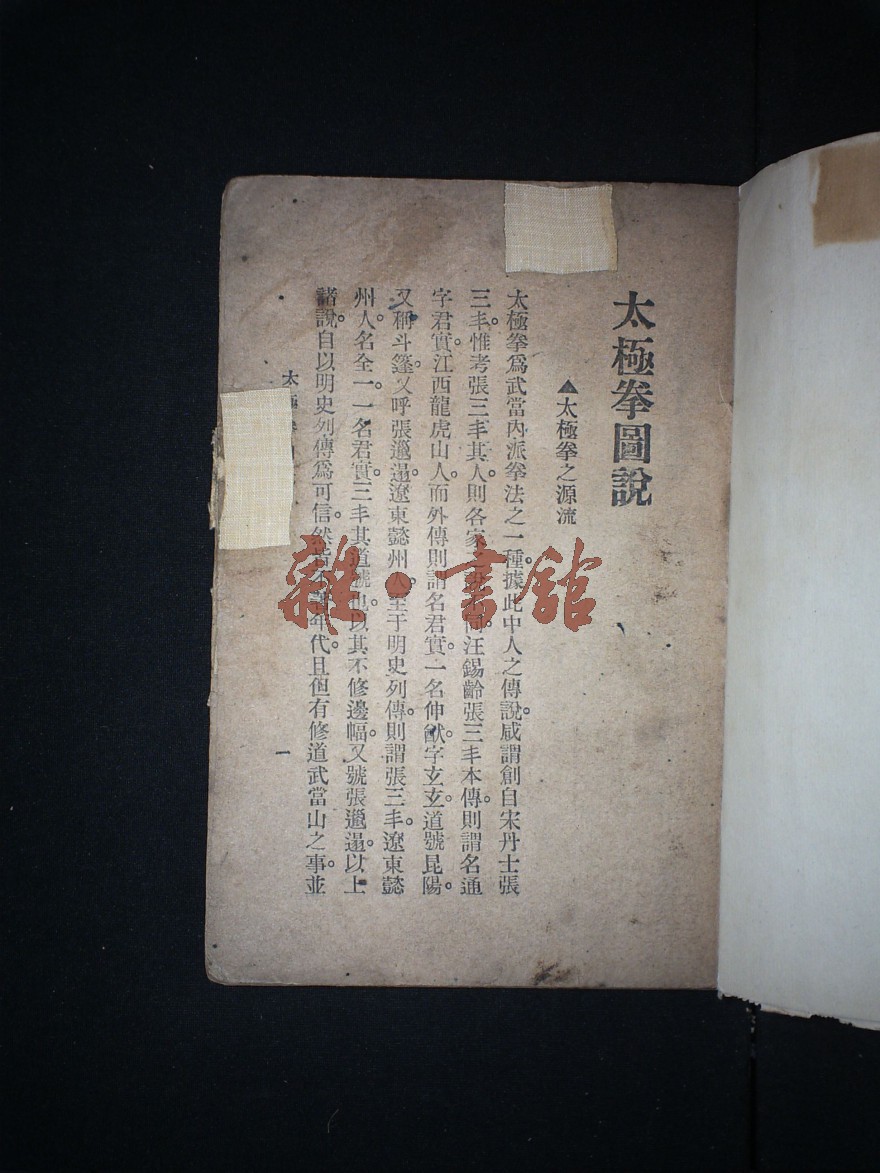 太極拳圖說
▲太極拳之源流
太極拳爲武當內派拳法之一種。據此中人之傳說。咸謂創自宋丹士張
三丰。惟考張三丰其人。則各家同。汪錫齡張三丰本傳。則謂名通
字君實。江西龍虎山人。而外傳則謂名君實。一名仲猷。字玄玄。道號昆陽。
又稱斗篷。又呼張邋遢。遼東懿州人。至于明史列傳。則謂張三丰。遼東懿
州人。名全一。一名君寶。三丰其道號也。以其不修邊幅。又號張邋遢。以上
諸說。自以明史列傳爲可信。然年代。且但有修道武當山之事。並
太極
一
雜·書館